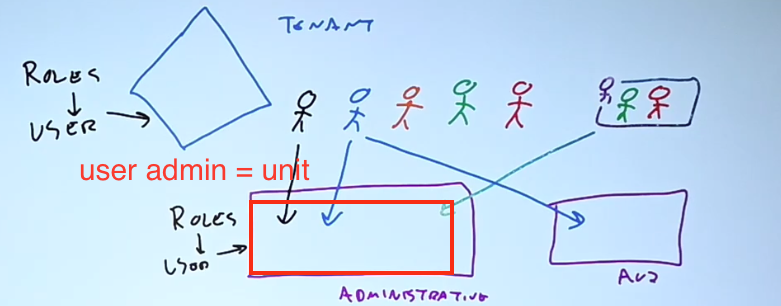 TENANT
ROLES
USER
user admin = unit
ROLES
USER
ADMINISTRATIVE
AU2